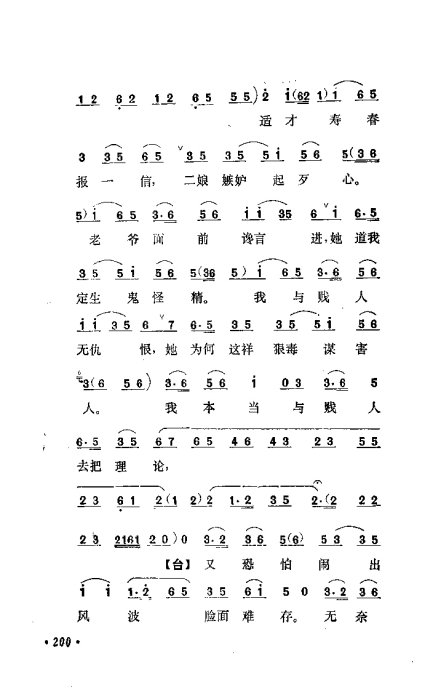 1 2 6 2 1 2 6 5 5 5) 2 i (6 2 1) i 6 5
适才 寿春
3 3 5 6 5 3 5 3 5 5 i 5 6 5 (3 6
报一信,二娘嫉妒起歹心。
5) i 6 5 3·6 5 6 i i 3 5 6 i 6·5
老爷面前谗言进,她道我
3 5 5 i 5 6 5 (3 6 5) i 6 5 3·6 5 6
定生鬼怪精。我与贱人
i i 3 5 6 7 6·5 3 5 3 5 5 i 5 6
无仇恨,她为何这祥狠毒谋害
3 (6 5 6) 3·6 5 6 i 0 3 3·6 5
人。我本当与贱人
6·5 3 5 6 7 6 5 4 6 4 3 2 3 5 5
去把理论,
2 3 6 1 2 (1 2) 2 1·2 3 5 2·(2 2 2
2 3 2 1 6 1 2 0) 0 3·2 3 6 5 (6) 5 3 3 5
【台】又恐怕闹出
i i 1·2 6 5 3 5 6 i 5 0 3·2 3 6
风波 脸面难存。无奈
· 200 ·